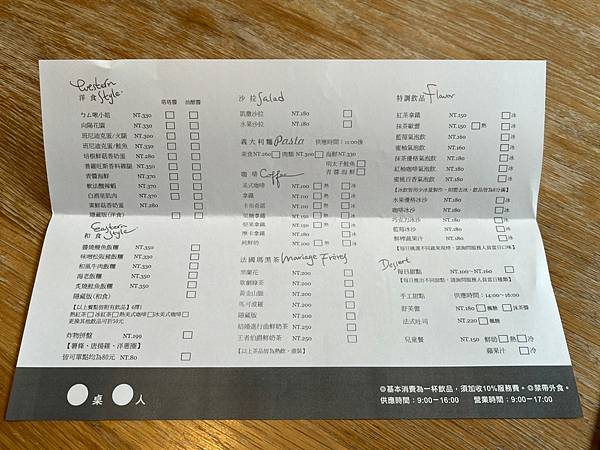 Western Style
洋食 塔塔醬 油醋醬
ㄅㄨ啾小姐 NT.330
向陽花園 NT.330
班尼迪克蛋/火腿 NT.300
班尼迪克蛋/鮭魚 NT.330
培根鮮菇香奶蛋 NT.280
普羅旺斯香料雞腿 NT.350
青醬海鮮 NT.370
軟法酸辣蝦 NT.370
白酒里肌肉 NT.370
蜜鮮菇香奶蛋 NT.280
隱藏版(洋食)
Eastern Style
和食
醬燒鰻魚飯糰 NT.350
味噌松阪豬飯糰 NT.330
和風牛肉飯糰 NT.330
海老飯糰 NT.350
炙燒鮭魚飯糰 NT.350
隱藏版(和食)
【以上餐點皆附有飲品】6擇1
熱紅茶 冰紅茶 熱美式咖啡 冰美式咖啡
更換其他飲品可折50元
炸物拼盤 NT.199
【薯條、唐揚雞、洋蔥圈】
皆可單點均為80元 NT.80
沙拉 Salad
凱撒沙拉 NT.180
水果沙拉 NT.180
義大利麵 Pasta 供應時間:11:00後
素食NT.260 肉類 NT.300 海鮮NT.330
明太子鮭魚
青醬海鮮
咖啡 Coffee
美式咖啡 NT.100 熱 冰
拿鐵 NT.150 熱 冰
卡布奇諾 NT.150 熱 冰
榛糖拿鐵 NT.150 熱 冰
NT.150 熱 冰
摩卡拿鐵 NT.180 熱 冰
純鮮奶 NT.100 熱 冰
法國瑪黑茶 Mariage Frères
黑蘭花 NT.200
歌劇綠茶 NT.200
黃金山脈 NT.200
馬可波羅 NT.200
隱藏版 NT.200
結婚進行曲鮮奶茶 NT.250
王者伯爵鮮奶茶 NT.250
【以上茶品皆為熱飲,壺裝】
特調飲品 Flavor
紅茶拿鐵 NT.150 冰
抹茶歐蕾 NT.150 熱 冰
藍莓氣泡飲 NT.160 冰
蜜柚氣泡飲 NT.160 冰
抹茶優格氣泡飲 NT.180 冰
紅柚咖啡氣泡飲 NT.180 冰
蜜桃百香氣泡飲 NT.180 冰
【冰飲皆用少冰量製作,如需去冰,飲品皆為8分滿】
水果優格冰沙 NT.180 冰
咖啡冰沙 NT.180 冰
巧克力冰沙 NT.180 冰
藍莓冰沙 NT.180 冰
鮮榨蔬果汁 NT.180 冰
【每日挑選不同蔬果現榨,請詢問服務人員當日口味】
Dessert
每日甜點 NT.100~NT.160
【每日推出不同甜點,請詢問服務人員當日種類】
手工甜點 供應時間:14:00~16:00
舒芙蕾 NT.180 楓糖
法式吐司 NT.220 楓糖
兒童餐 NT.150 鮮奶 熱 冰
蘋果汁 冰
桌 人
◎基本消費為一杯飲品,須加收10%服務費。◎禁帶外食。
供應時間:9:00-16:00 營業時間:9:00-17:00